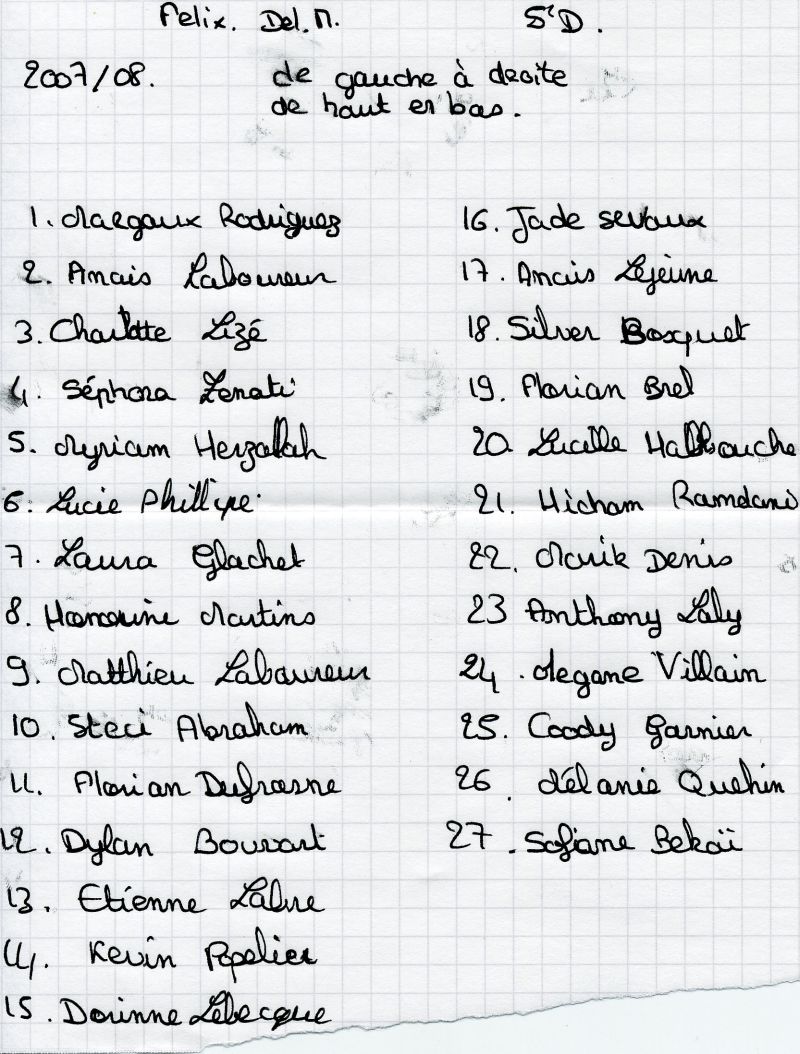 Felix. Del. M. 5°D.
2007/08. de gauche à droite
de haut en bas.
1. Margaux Rodriguez
2. Anais Laboureur
3. Charlotte Lizé
4. Séphora Zenati
5. Myriam Herzallah
6. Lucie Phillipe
7. Laura Glachet
8. Honorine Martins
9. Matthieu Laboureur
10. Steci Abraham
11. Florian Dufrasne
12. Dylan Bouvart
13. Etienne Labre
14. Kevin Popelier
15. Dorinne Lebecque
16. Jade sevaux
17. Anais Lejeune
18. Silver Bosquet
19. Florian Brel
20. Lucille Halbouche
21. Hicham Ramdani
22. Marik Denis
23 Anthony Laly
24. Megane Villain
25. Coody Garnier
26. Mélanie Quehin
27. Sofiane Bekaï